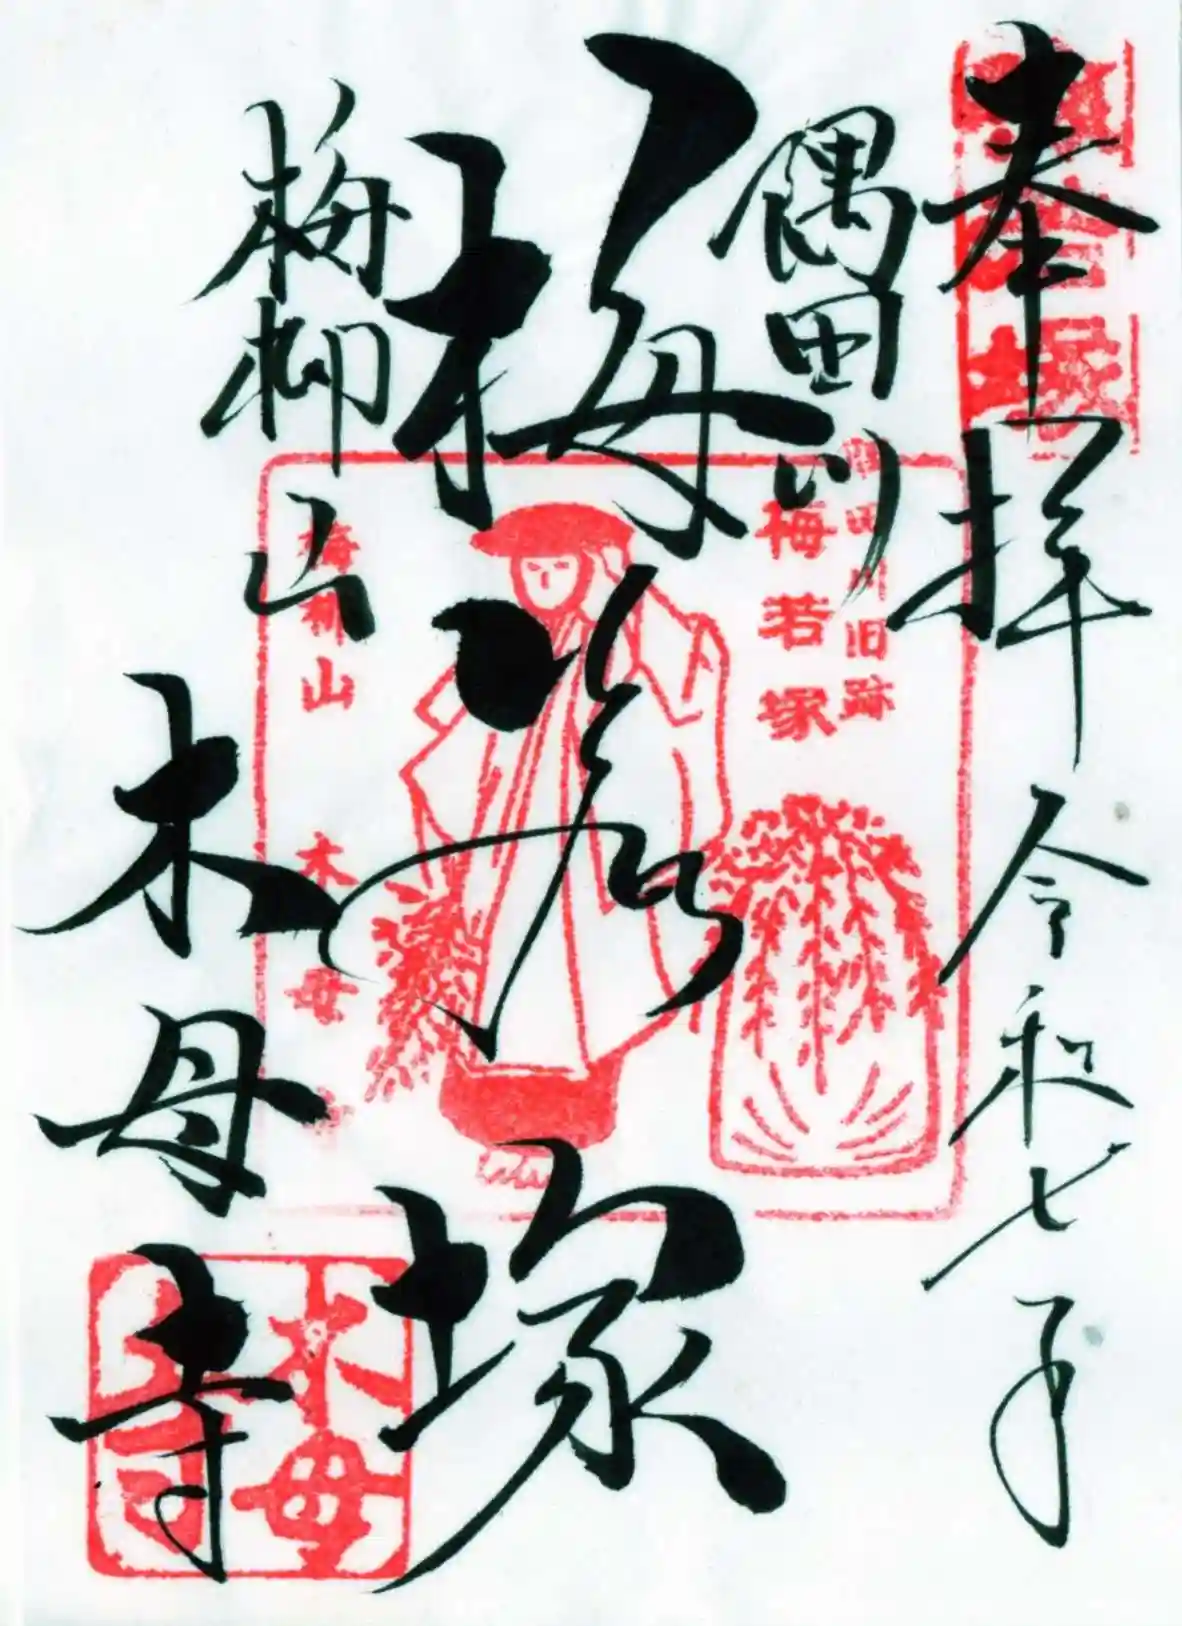 奉拝
令和七年
隅田川
梅若塚
梅柳山
木母寺
隅田川旧跡
梅若塚
梅柳山
木母寺
木母寺司